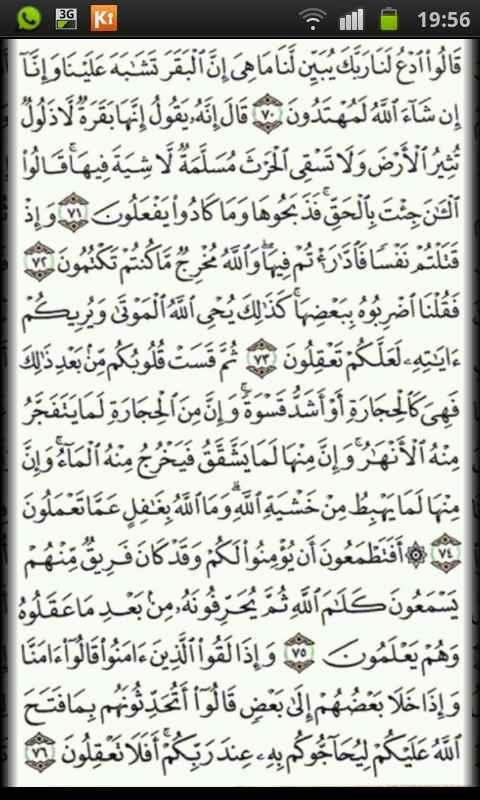 3G
K↑
19:56
قَالُوا۟ ٱدْعُ لَنَا رَبَّكَ يُبَيِّن لَّنَا مَا هِىَ إِنَّ ٱلْبَقَرَ تَشَـٰبَهَ عَلَيْنَا وَإِنَّآ
إِن شَآءَ ٱللَّهُ لَمُهْتَدُونَ ٧٠ قَالَ إِنَّهُۥ يَقُولُ إِنَّهَا بَقَرَةٌ لَّا ذَلُولٌ
تُثِيرُ ٱلْأَرْضَ وَلَا تَسْقِى ٱلْحَرْثَ مُسَلَّمَةٌ لَّا شِيَةَ فِيهَا ۚ قَالُوا۟
ٱلْـَٔـٰنَ جِئْتَ بِٱلْحَقِّ ۚ فَذَبَحُوهَا وَمَا كَادُوا۟ يَفْعَلُونَ ٧١ وَإِذْ
قَتَلْتُمْ نَفْسًا فَٱدَّٰرَْٰٔتُمْ فِيهَا ۖ وَٱللَّهُ مُخْرِجٌ مَّا كُنتُمْ تَكْتُمُونَ ٧٢
فَقُلْنَا ٱضْرِبُوهُ بِبَعْضِهَا ۚ كَذَٰلِكَ يُحْىِ ٱللَّهُ ٱلْمَوْتَىٰ وَيُرِيكُمْ
ءَايَـٰتِهِۦ لَعَلَّكُمْ تَعْقِلُونَ ٧٣ ثُمَّ قَسَتْ قُلُوبُكُم مِّنۢ بَعْدِ ذَٰلِكَ
فَهِىَ كَٱلْحِجَارَةِ أَوْ أَشَدُّ قَسْوَةً ۚ وَإِنَّ مِنَ ٱلْحِجَارَةِ لَمَا يَتَفَجَّرُ
مِنْهُ ٱلْأَنْهَـٰرُ ۚ وَإِنَّ مِنْهَا لَمَا يَشَّقَّقُ فَيَخْرُجُ مِنْهُ ٱلْمَآءُ ۚ وَإِنَّ
مِنْهَا لَمَا يَهْبِطُ مِنْ خَشْيَةِ ٱللَّهِ ۗ وَمَا ٱللَّهُ بِغَـٰفِلٍ عَمَّا تَعْمَلُونَ
٧٤ ۞ أَفَتَطْمَعُونَ أَن يُؤْمِنُوا۟ لَكُمْ وَقَدْ كَانَ فَرِيقٌ مِّنْهُمْ
يَسْمَعُونَ كَلَـٰمَ ٱللَّهِ ثُمَّ يُحَرِّفُونَهُۥ مِنۢ بَعْدِ مَا عَقَلُوهُ
وَهُمْ يَعْلَمُونَ ٧٥ وَإِذَا لَقُوا۟ ٱلَّذِينَ ءَامَنُوا۟ قَالُوٓا۟ ءَامَنَّا
وَإِذَا خَلَا بَعْضُهُمْ إِلَىٰ بَعْضٍ قَالُوٓا۟ أَتُحَدِّثُونَهُم بِمَا فَتَحَ
ٱللَّهُ عَلَيْكُمْ لِيُحَآجُّوكُم بِهِۦ عِندَ رَبِّكُمْ ۚ أَفَلَا تَعْقِلُونَ ٧٦